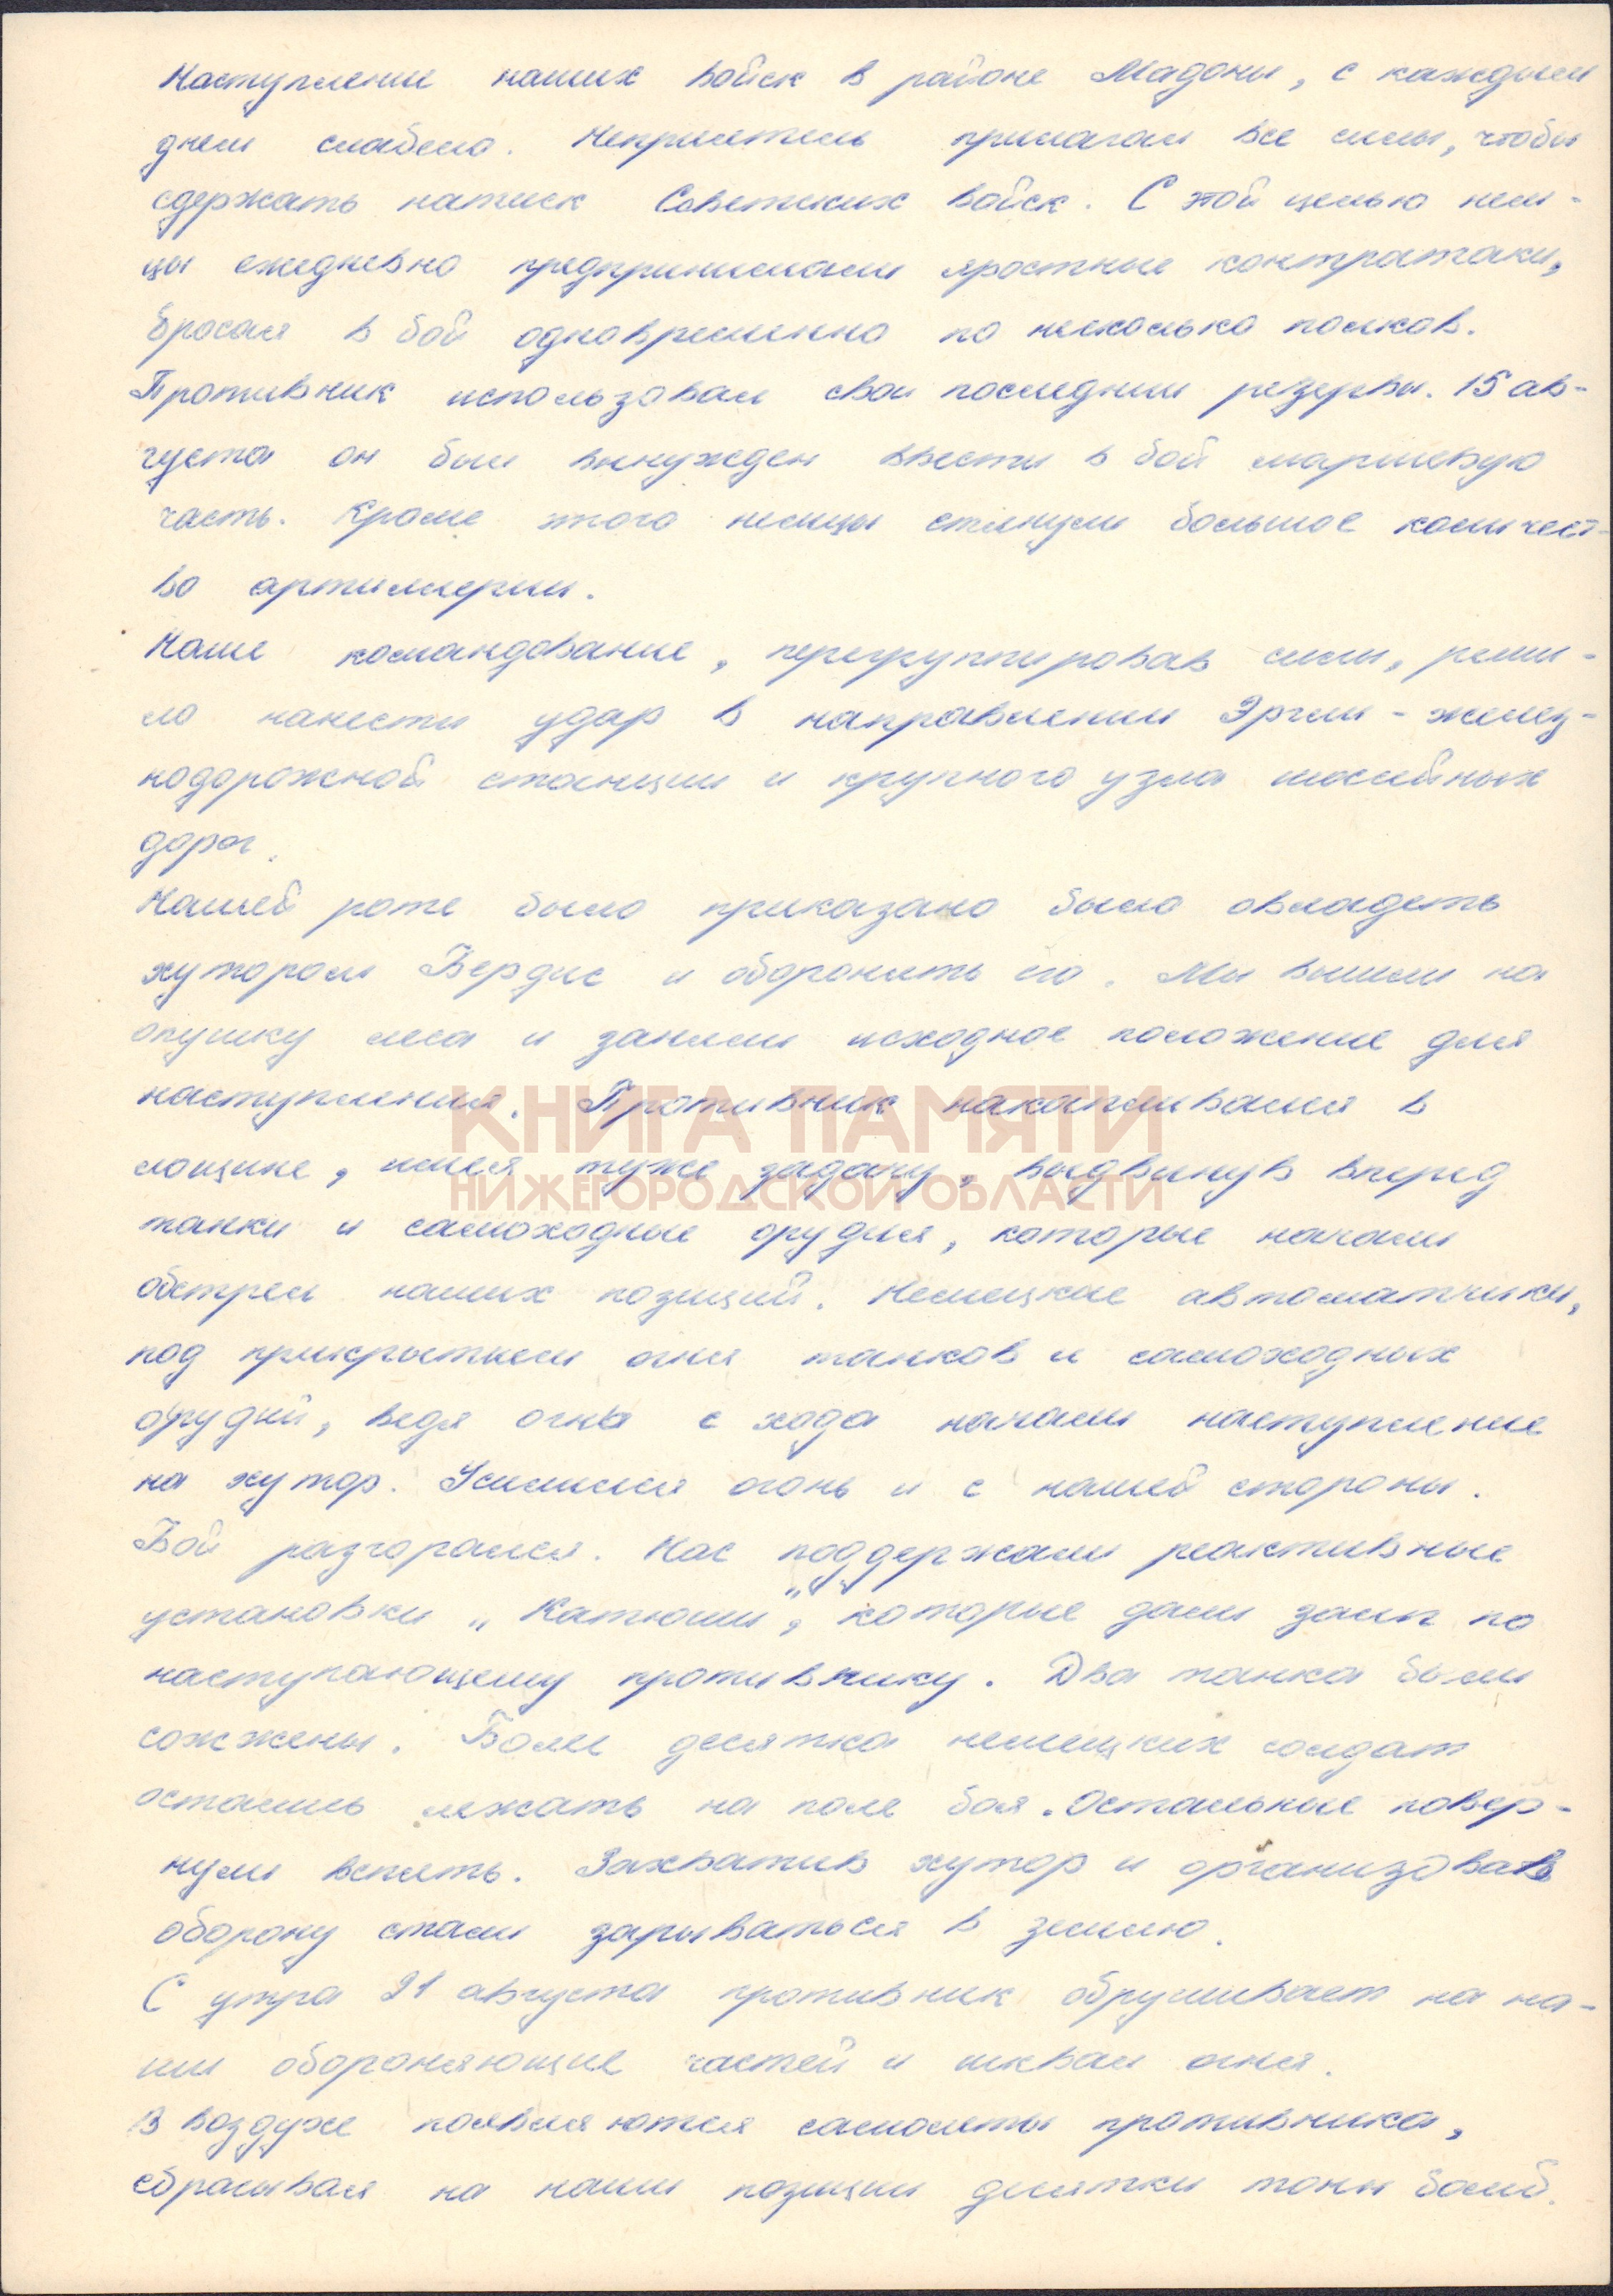 Наступление наших войск в районе Мадоны, с каждым
днем слабело. Неприятель прилагал все силы, чтобы
сдержать натиск Советских войск. С этой целью нем-
цы ежедневно предпринимали яростные контратаки,
бросая в бой одновременно по несколько полков.
Противник использовал свои последнии резервы. 15 ав-
густа он был вынужден ввести в бой маршевую
часть. Кроме этого немцы стянули большое количест-
во артиллерии.
Наше командование, перегруппировав силы, реши-
ло нанести удар в направлении Эргли - желез-
нодорожной станции и крупного узла шоссейных
дорог.
Нашей роте было приказано было овладеть
хутором Бердис и оборонять его. Мы вышли на
опушку леса и заняли исходное положение для
наступления. Противник накапливался в
КНИГА ПАМЯТИ
лощине, имея туже задачу, выдвинув вперед
НИЖЕГОРОДСКОЙ ОБЛАСТИ
танки и самоходные орудия, которые начали
обстрел наших позиций. Немецкие автоматчики,
под прикрытием огня танков и самоходных
орудий, ведя огнь с хода начали наступление
на хутор. Усилился огонь и с нашей стороны.
Бой разгорался. Нас поддержали реактивные
установки „Катюши", которые дали залп по
наступающему противнику. Два танка были
сожжены. Более десятка немецких солдат
остались лежать на поле боя. Остальные повер-
нули вспять. Захватив хутор и организовав
оборону стали зарываться в землю.
С утра 21 августа противник обрушивает на на-
ши обороняющие частей и шквал огня.
В воздухе появляются самолеты противника,
сбрасывая на наши позиции десятки тонн бомб.